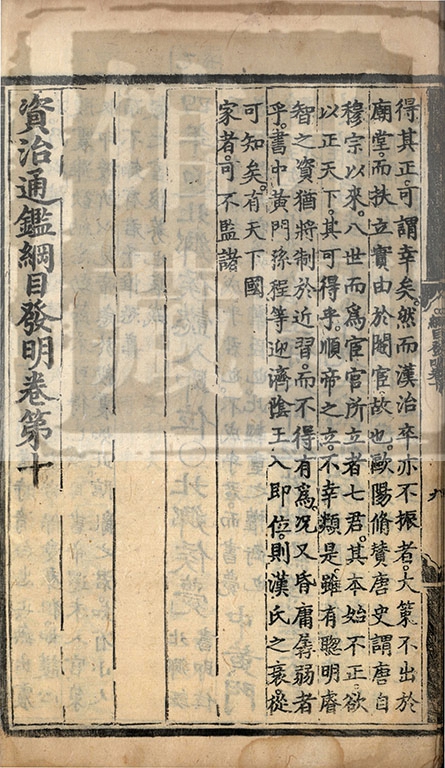 得其正可謂幸矣。然而漢治卒亦不振者。大策不出於
廟堂。而扶立實由於閹宦故也。歐陽脩贊唐史謂唐自
穆宗以來。八世而爲宦官所立者七君。其本始不正。欲
以正天下。其可得乎。順帝之立。不幸類是。雖有聦明睿
智之資。猶將制於近習。而不得有爲。况又昏庸孱弱者
乎。書中黄門孫程等迎濟陰王入即位。則漢氏之衰。從
可知矣。有天下國
家者。可不監諸
資治通鑑綱目發明卷第十